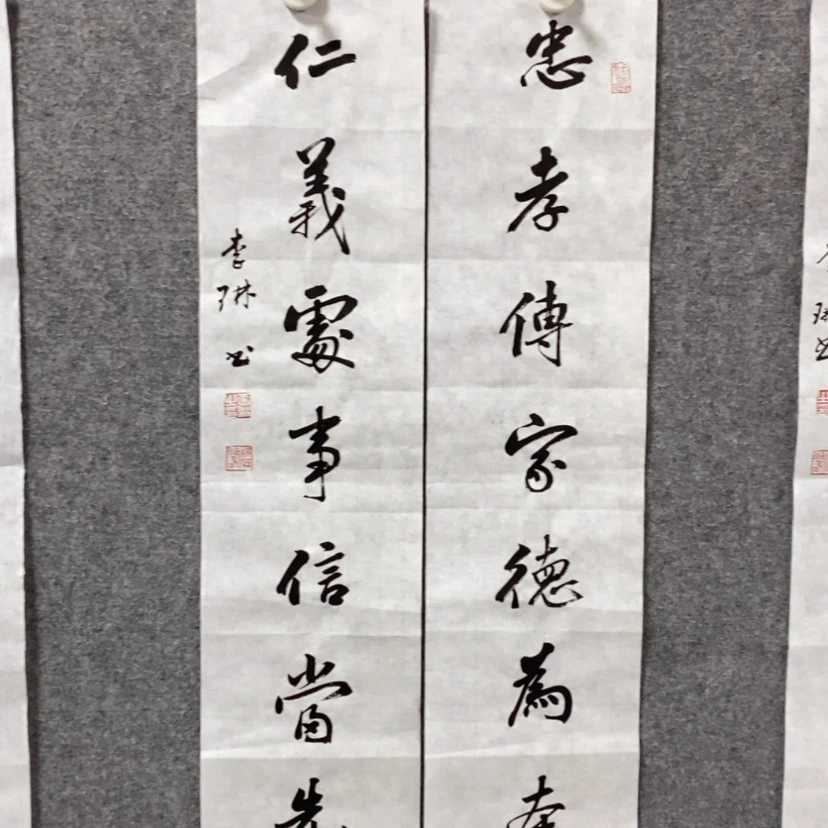 忠孝傳家德為本
仁義處事信當先
李琳書